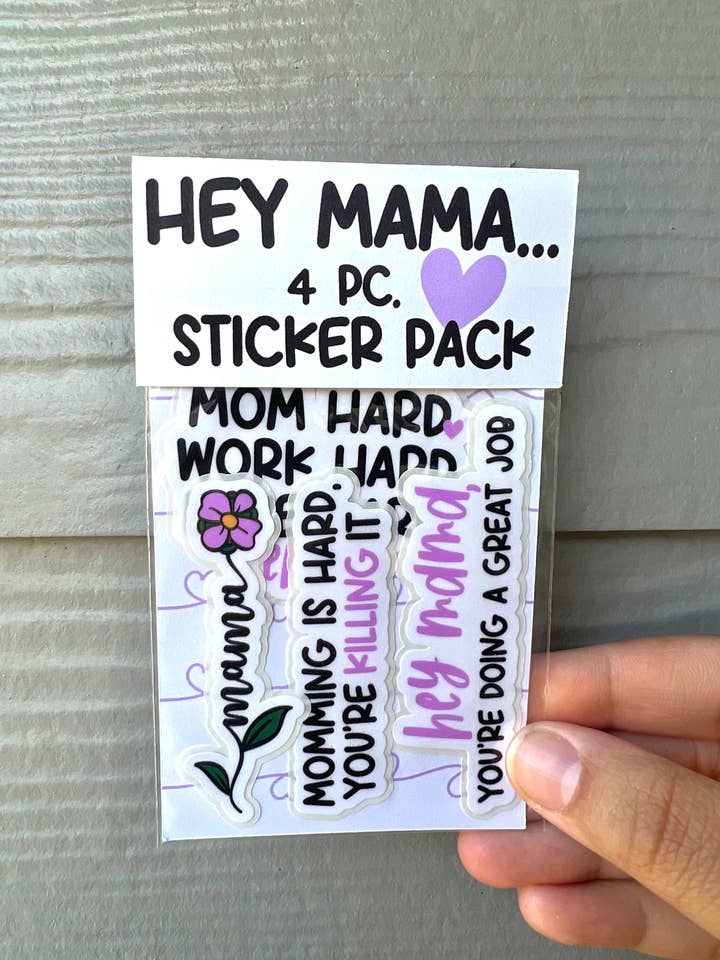 HEY MAMA...
4 PC.
STICKER PACK
MOM HARD
WORK HARD
mama
MOMMING IS HARD,
YOU'RE KILLING IT
hey mama,
YOU'RE DOING A GREAT JOB